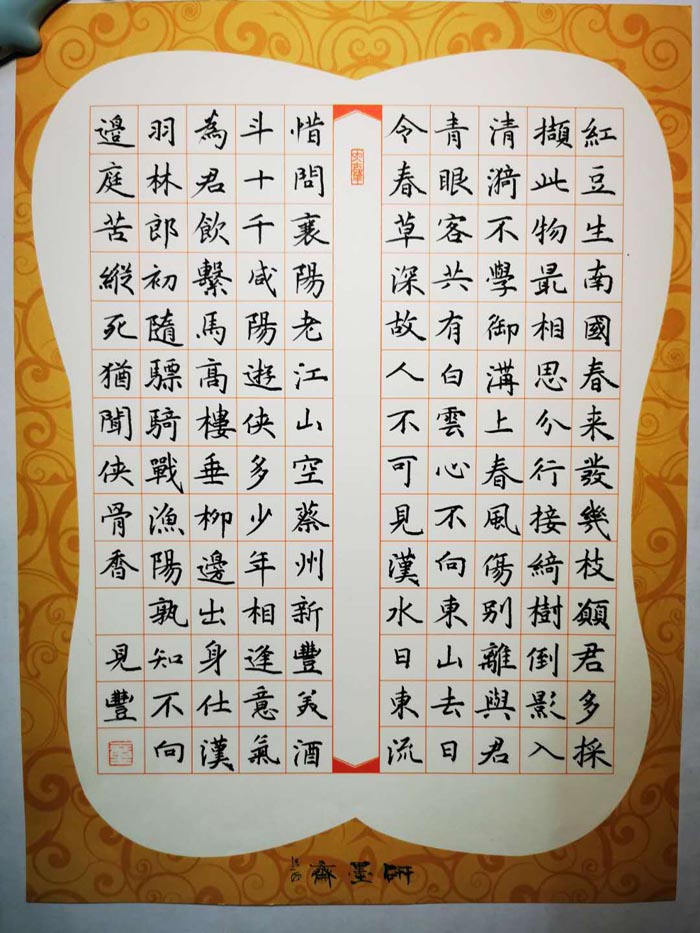 紅豆生南國春来發幾枝願君多採
擷此物最相思分行接綺樹倒影入
清漪不學御溝上春風傷別離與君
青眼客共有白雲心不向東山去日
令春草深故人不可見漢水日東流
惜問襄陽老江山空蔡州新豐美酒
斗十千咸陽遊侠多少年相逢意氣
為君飲繫馬高樓垂柳邊出身仕漢
羽林郎初隨驃騎戰漁陽孰知不向
邊庭苦縱死猶聞侠骨香 見豐
研墨齋